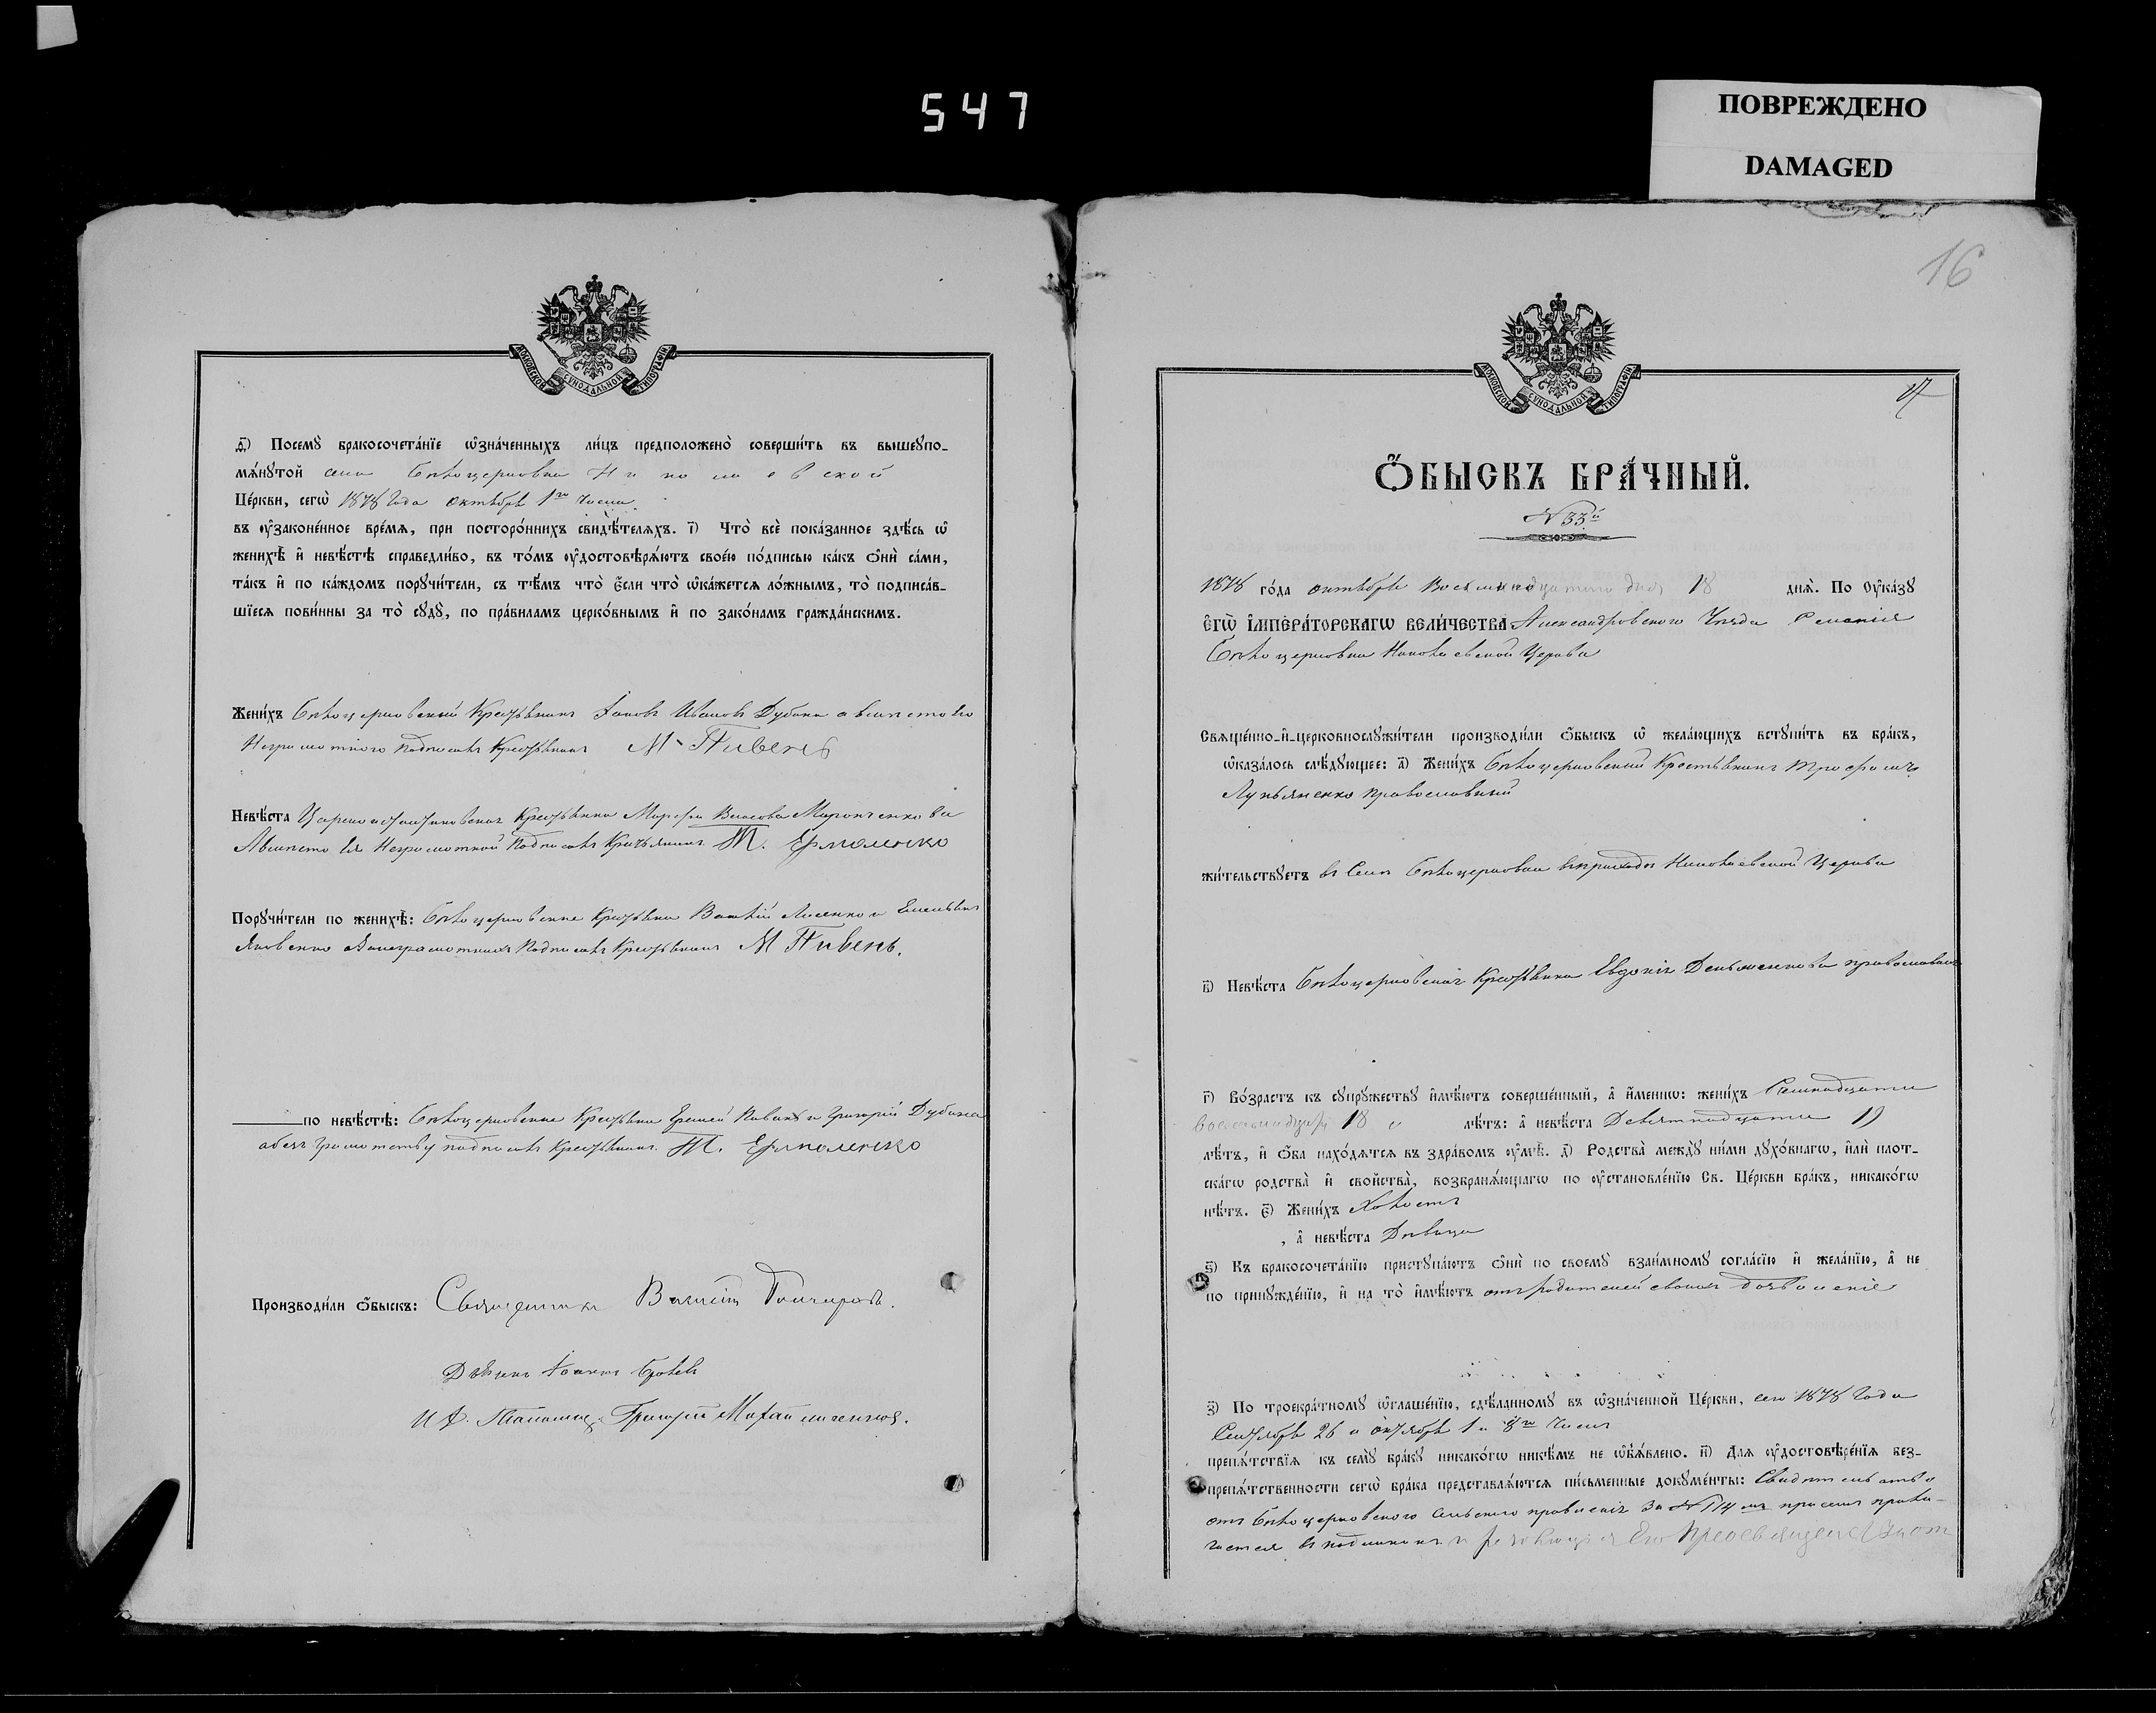 547
ПОВРЕЖДЕНО
DAMAGED
МОСКОВСКОЙ СѴНОДАЛЬНОЙ ТИПОГРАФІИ
д҃) Посемꙋ̀ бракосочета́нїе ѡ҆зна́ченныхъ ли́цъ предположено̀ соверши́ть въ вышеꙋпо-
мѧ́нꙋтой села Бѣлоцерковки Николаевской
Це́ркви, сегѡ̀ 1878 года октября 1го числа.
въ ᲂу҆законе́нное вре́мѧ, при посторо́ннихъ свидѣ́телѧхъ. і҃) Что̀ всѐ пока́занное здѣ́сь ѡ҆
женихѣ̀ и҆ невѣ́стѣ справедли́во, въ то́мъ ᲂу҆достовѣрѧ́ютъ свое́ю по́дписью ка́къ ѻ҆нѝ са́ми,
та́къ и҆ по ка́ждомъ порꙋчи́тели, съ тѣ́мъ что̀ є҆́сли что̀ ѡ҆ка́жетсѧ ло́жнымъ, то̀ подписа́в-
шїесѧ пови́нны за то̀ сꙋдꙋ̀, по пра́виламъ церко́внымъ и҆ по зако́намъ гражда́нскимъ.
Жени́хъ Бѣлоцерковский Крестьянин Іаковъ Ивановъ Дубина а вместо его
Неграмотного подписалъ Крестьянинъ М Пивень
Невѣ́ста Крестьянка Марфа Власова
Авместо ея Неграмотной Подписалъ Крестьянинъ Т. Ермоленко
Порꙋчи́тели по женихѣ̀: Бѣлоцерковские Крестьяне Василій Лисенко и Емельянъ
Яковенко Неграмотныхъ Подписалъ Крестьянинъ М Пивень.
по невѣ́стѣ: Бѣлоцерковские Крестьяне и Григорій Дубина
подписалъ Крестьянинъ Т. Ермоленко
Производи́ли ѻ҆́быскъ: Священникъ Василій Гончаровъ.
Дьяконъ Іоаннъ
И. Д. Псаломщ. Григорій
16
17
МОСКОВСКОЙ СѴНОДАЛЬНОЙ ТИПОГРАФІИ
Ѻ҆́БЫСКЪ БРА́ЧНЫЙ.
N 33й
1878 го́да октября Восемнадцатого дня 18 днѧ̀. По Оу҆ка́зꙋ
Є҆ГѠ̀ И҆МПЕРА́ТОРСКАГѠ ВЕЛИ́ЧЕСТВА Александровского Уезда Селения
Бѣлоцерковки Николаевской Церкви
Свѧще́нно-и҆-церковнослꙋжи́тели производи́ли ѻ҆́быскъ ѡ҆ жела́ющихъ встꙋпи́ть въ бра́къ,
ѡ҆каза́лось слѣ́дꙋющее: а҃) Жени́хъ Бѣлоцерковский Крестьянинъ Трофимъ
Лукьяненко православный
жи́тельствꙋетъ въ Селѣ Бѣлоцерковки въ приходѣ Николаевской Церкви
в҃) Невѣ́ста Бѣлоцерковская Крестьянка Евдокія Демьяненкова православная
г҃) Во́зрастъ къ сꙋпрꙋ́жествꙋ и҆мѣ́ютъ соверше́нный, а҆ и҆́менно: жени́хъ
18 лѣ́тъ: а҆ невѣ́ста Девятнадцати 19
лѣ́тъ, и҆ ѻ҆́ба нахо́дѧтсѧ въ здра́вомъ ᲂу҆мѣ̀. д҃) Родства̀ междꙋ̀ ни́ми дꙋхо́внагѡ, и҆лѝ плот-
ска́гѡ родства̀ и҆ сво́йства̀, возбранѧ́ющагѡ по ᲂу҆становле́нїю Св. Це́ркви бра́къ, никако́гѡ
нѣ́тъ. є҃) Жени́хъ Холостъ
, а҆ невѣ́ста Дѣвица
ѕ҃) Къ бракосочета́нїю пристꙋпа́ютъ ѻ҆нѝ по своемꙋ̀ взаи́мномꙋ согла́сїю и҆ жела́нїю, а҆ не
по принꙋжде́нїю, и҆ на то̀ и҆мѣ́ютъ отъ родителей своихъ дозволеніе
з҃) По троекра́тномꙋ ѡ҆глаше́нїю, сдѣ́ланномꙋ въ ѡ҆зна́ченной Це́ркви, сего 1878 года
Сентября 26 и октября 1 и 8го числъ
препѧ́тствїѧ къ семꙋ̀ бра́кꙋ никако́гѡ никѣ́мъ не ѡ҆б̾ѧ́влено. и҃) Длѧ ᲂу҆достовѣре́нїѧ без-
препѧ́тственности сегѡ̀ бра́ка представлѧ́ютсѧ пи́сьменные докꙋме́нты: Свидетельство
отъ Бѣлоцерковского сельского правленія за N 174 при семъ прила-
гается въ подлинникѣ и резолюція Его Преосвященства